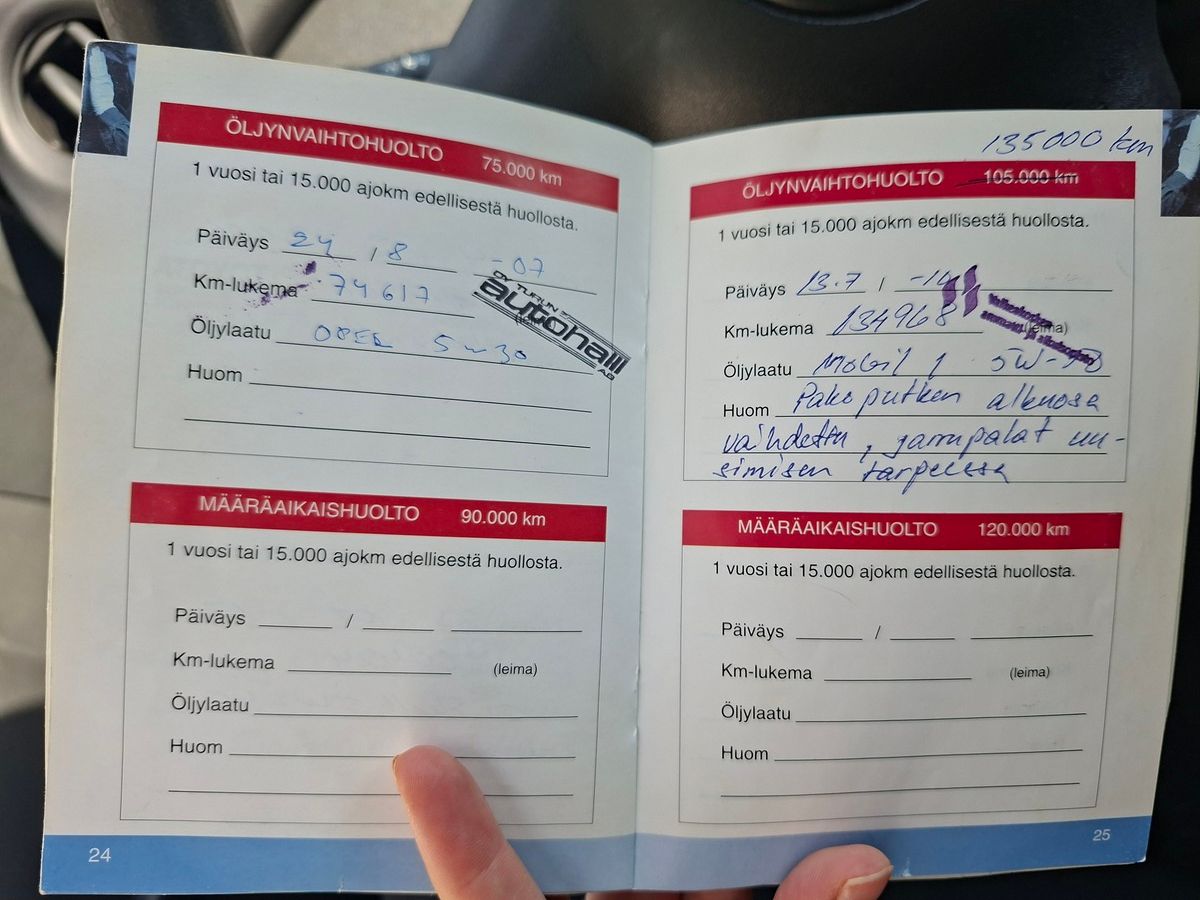 ÖLJYNVAIHTOHUOLTO 75.000 km
1 vuosi tai 15.000 ajokm edellisestä huollosta.
Päiväys 24 / 8 -07
Km-lukema 74617
OY TURUN
autohalli
AB
Öljylaatu 5w30
Huom
MÄÄRÄAIKAISHUOLTO 90.000 km
1 vuosi tai 15.000 ajokm edellisestä huollosta.
Päiväys /
Km-lukema (leima)
Öljylaatu
Huom
24
135000 km
ÖLJYNVAIHTOHUOLTO 105.000 km
1 vuosi tai 15.000 ajokm edellisestä huollosta.
Päiväys 13.7 /
Km-lukema 134968 (leima)
Öljylaatu Mobil 1 5W-50
Huom Pakoputken alkuosa
vaihdettu, jarrupalat uu-
simisen tarpeessa
MÄÄRÄAIKAISHUOLTO 120.000 km
1 vuosi tai 15.000 ajokm edellisestä huollosta.
Päiväys /
Km-lukema (leima)
Öljylaatu
Huom
25